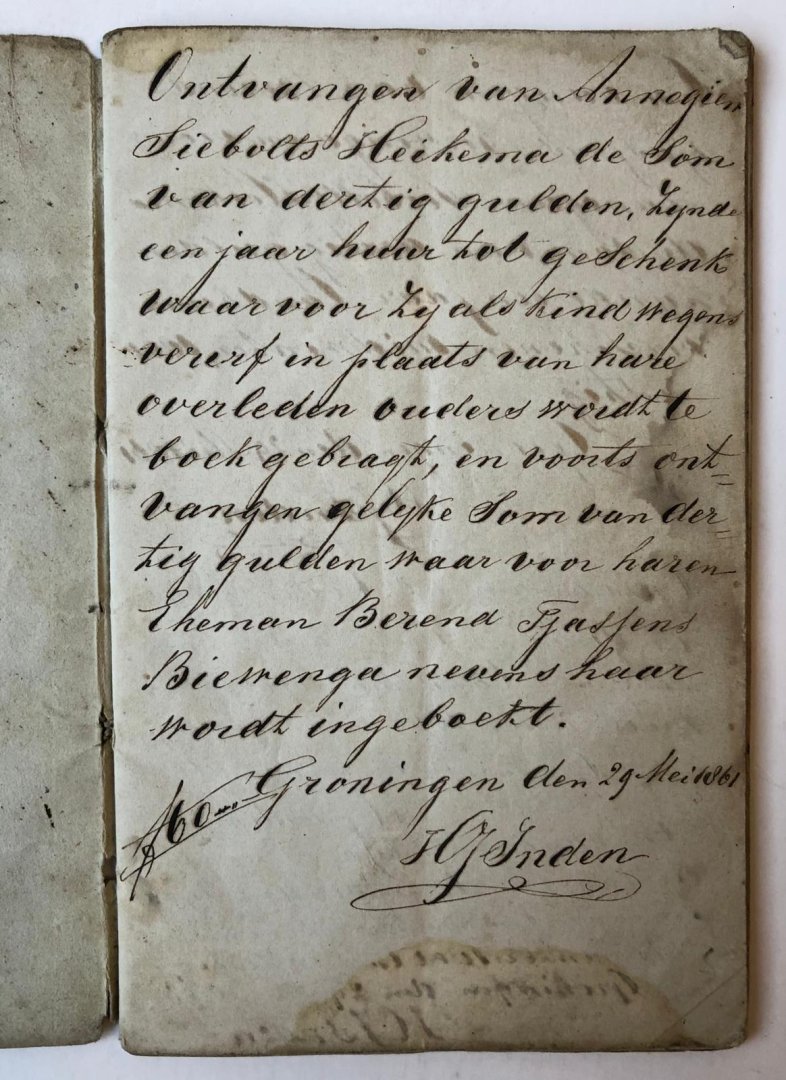 Ontvangen van Annegien
Siebolts Heikema de Som
van dertig gulden, Zynde
een jaar huur tot geschenk
waar voor Zy als kind wegens
vererf in plaats van hare
overleden ouders wordt te
boek gebragt, en voorts ont=
vangen gelyke Som van der=
tig gulden waar voor haren
Eheman Berend Tjassens
Biewenga nevens haar
wordt ingeboekt.
Groningen den 29 Mei 1861
f 60
HG Inden